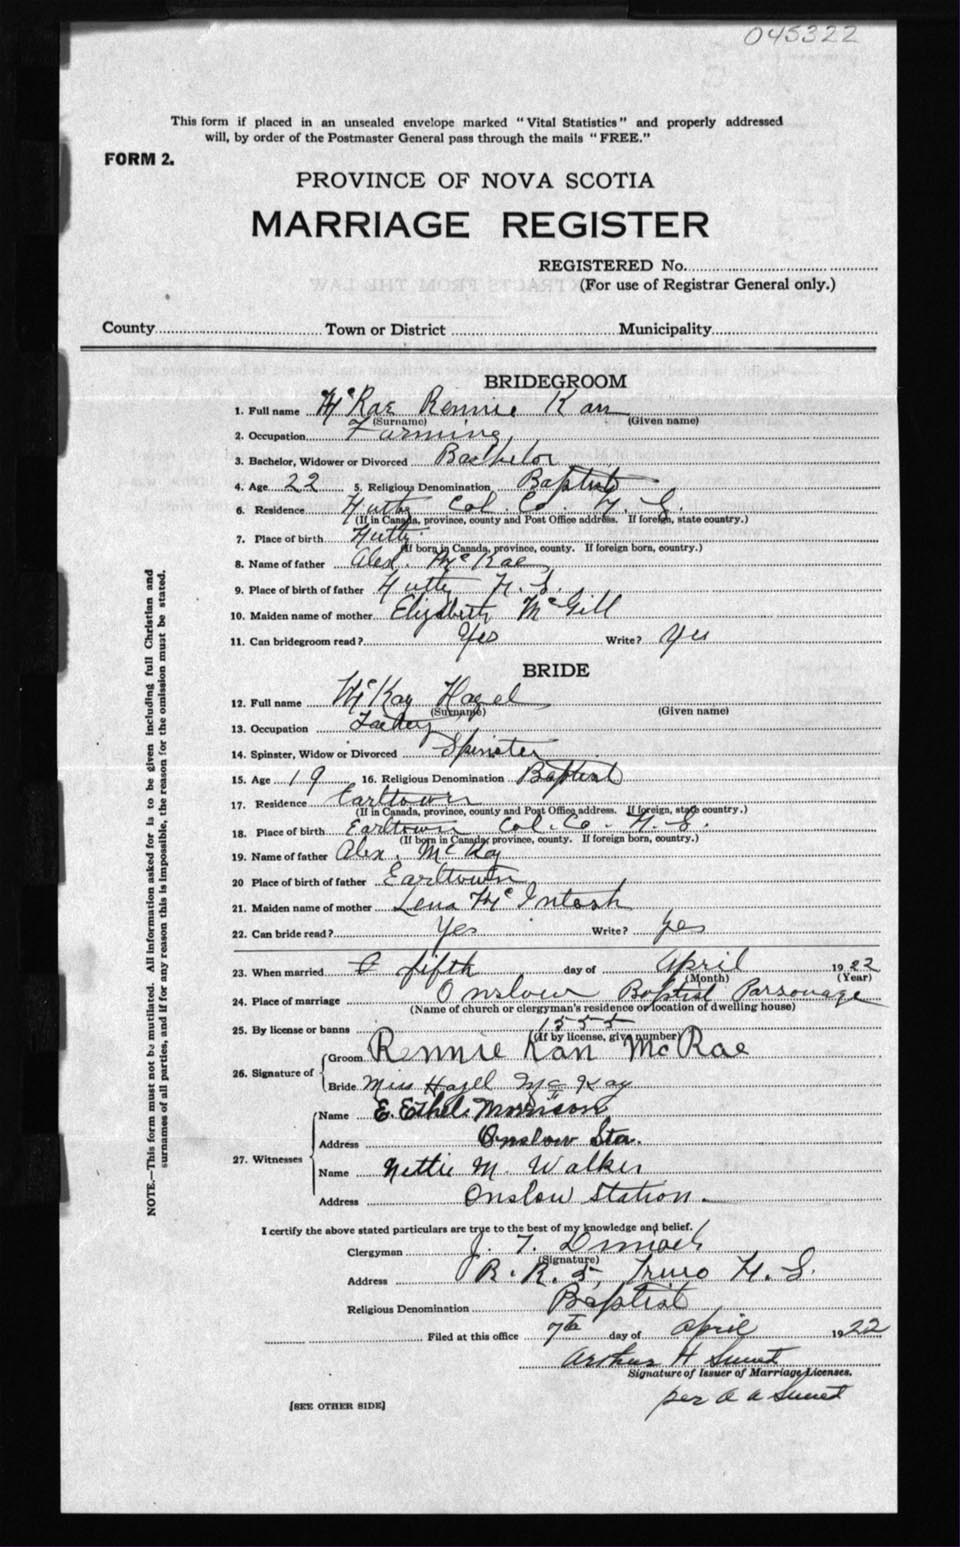 045322
This form if placed in an unsealed envelope marked "Vital Statistics" and properly addressed
will, by order of the Postmaster General pass through the mails "FREE."
FORM 2.
PROVINCE OF NOVA SCOTIA
MARRIAGE REGISTER
REGISTERED No.
(For use of Registrar General only.)
County Town or District Municipality
BRIDEGROOM
1. Full name McRae Rennie Kan
(Surname) (Given name)
2. Occupation Farming
3. Bachelor, Widower or Divorced Bachelor
4. Age 22 5. Religious Denomination Baptist
6. Residence Col. Co. N. S.
(If in Canada, province, county and Post Office address. If foreign, state country.)
7. Place of birth
(If born in Canada, province, county. If foreign born, country.)
8. Name of father Alex. McRae
9. Place of birth of father N. S.
10. Maiden name of mother Elizabeth McGill
11. Can bridegroom read? Yes Write? Yes
BRIDE
12. Full name McKay Hazel
(Surname) (Given name)
13. Occupation
14. Spinster, Widow or Divorced Spinster
15. Age 19 16. Religious Denomination Baptist
17. Residence Earltown
(If in Canada, province, county and Post Office address. If foreign, state country.)
18. Place of birth Earltown Col. Co. N. S.
(If born in Canada, province, county. If foreign born, country.)
19. Name of father Alex. McKay
20 Place of birth of father Earltown
21. Maiden name of mother Lena McIntosh
22. Can bride read? Yes Write? yes
23. When married fifth day of April 1922
(Month) (Year)
24. Place of marriage Onslow Baptist Parsonage
(Name of church or clergyman's residence or location of dwelling house)
25. By license or banns 1555
(If by license, give number)
26. Signature of Groom Rennie Kan McRae
Bride Miss Hazel McKay
27. Witnesses Name E. Ethel Morrison
Address Onslow Sta.
Name Nettie M. Walker
Address Onslow Station.
I certify the above stated particulars are true to the best of my knowledge and belief.
Clergyman J. T.
(Signature)
Address R. R. 5, Truro N. S.
Religious Denomination Baptist
Filed at this office 7th day of April 1922
Arthur H
Signature of Issuer of Marriage Licenses.
per
[SEE OTHER SIDE]
NOTE.—This form must not be mutilated. All information asked for is to be given including full Christian and
surnames of all parties, and if for any reason this is impossible, the reason for the omission must be stated.